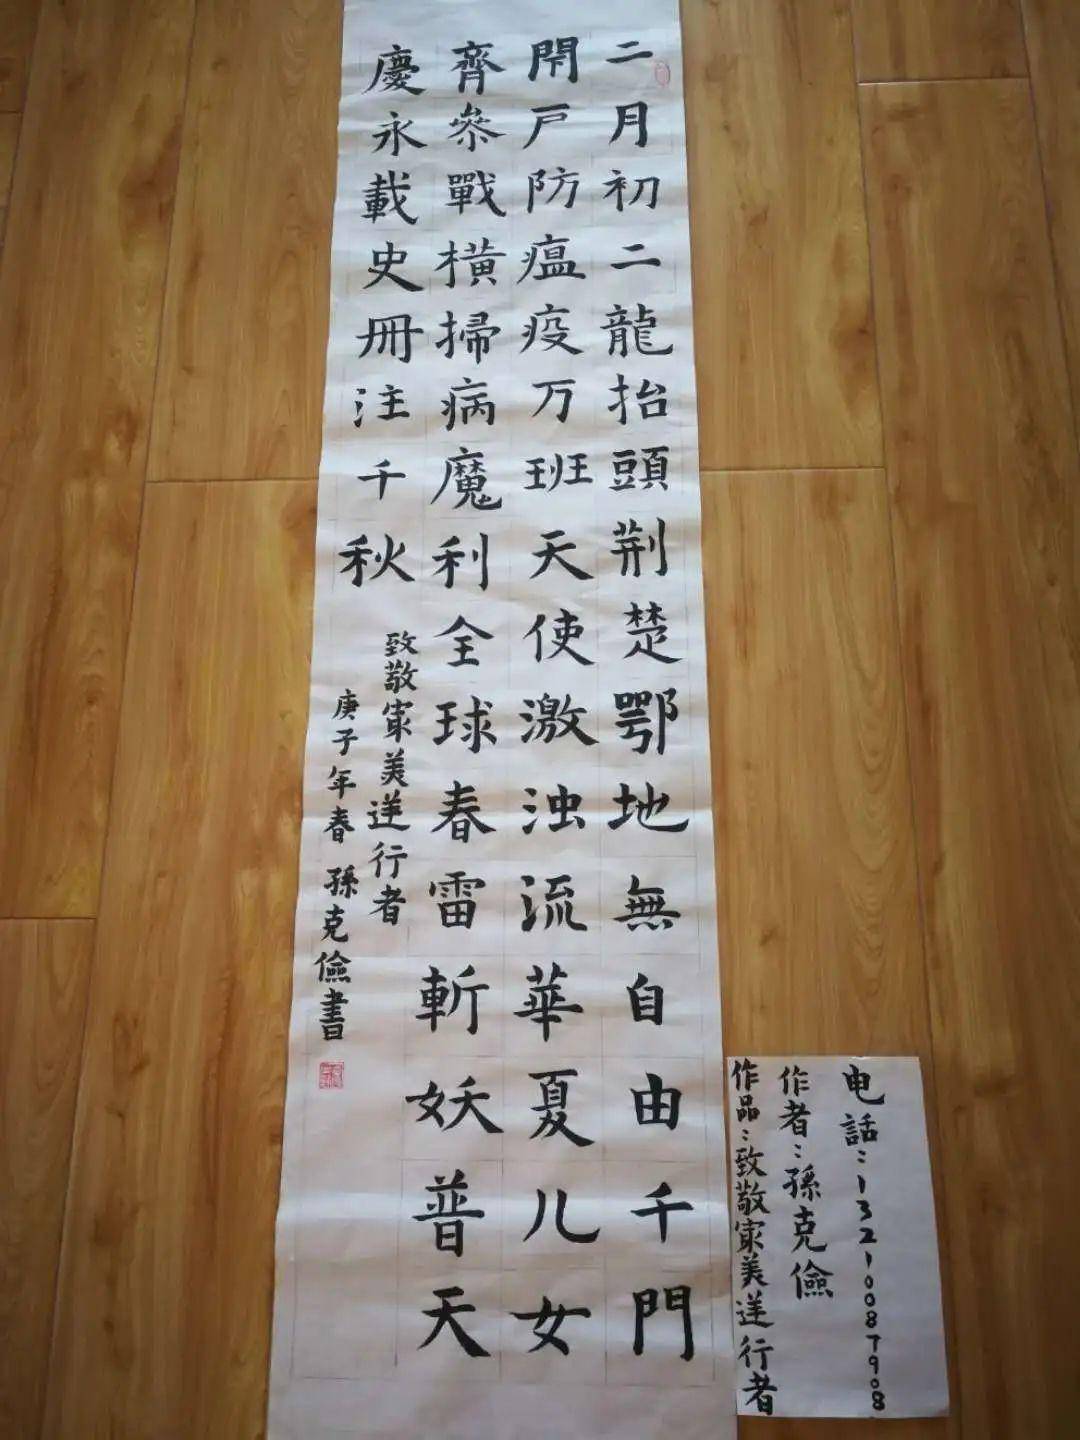 二月初二龍抬頭荆楚鄂地無自由千門
閇戸防瘟疫万班天使激浊流華夏儿女
齊叅戰横掃病魔利全球春雷斬妖普天
慶永載史冊注千秋
致敬㝡美逆行者
庚子年春 孫克儉書
电話：13210087908
作者：孫克儉
作品：致敬㝡美逆行者